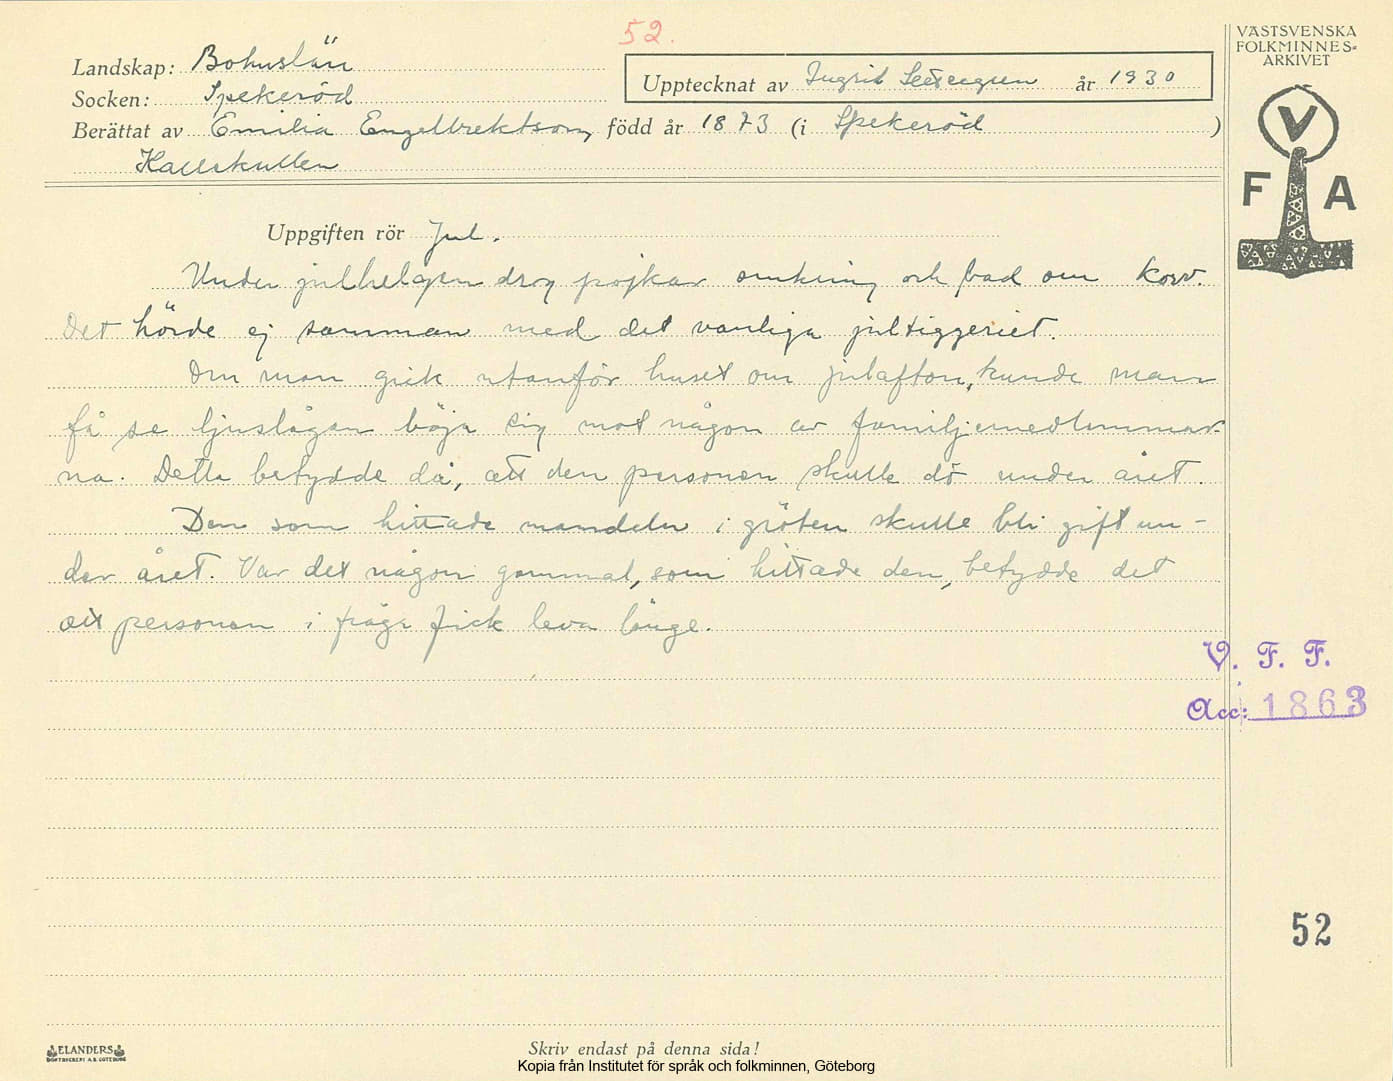 52.
VÄSTSVENSKA
FOLKMINNES-
ARKIVET
Landskap: Bohuslän
Upptecknat av Ingrid år 1930
Socken: Spekeröd
Berättat av Emilia Engelbrektson, född år 1873 (i Spekeröd)
V
F A
Uppgiften rör Jul.
Under julhelgen drog pojkar omkring och bad om korv.
Det hörde ej samman med det vanliga jultiggeriet.
Om man gick utanför huset om julafton, kunde man
få se ljuslågan böja sig mot någon av familjemedlemmar-
na. Detta betydde då, att den personen skulle dö under året.
Den som hittade mandeln i gröten skulle bli gift un-
der året. Var det någon gammal, som hittade den, betydde det
att personen i fråga fick leva länge.
V. F. F.
Acc: 1863
52
ELANDERS
BOKTRYCKERI A.B. GÖTEBORG
Skriv endast på denna sida!
Kopia från Institutet för språk och folkminnen, Göteborg